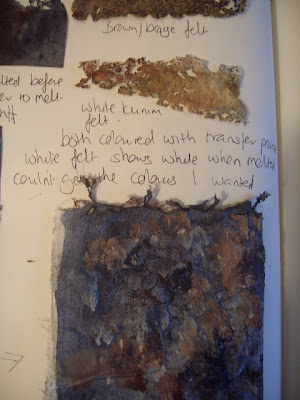 Brown/beige felt
before
to melt
white kunin
felt.
both coloured with transfer
white felt shows white when melted
the colours I wanted